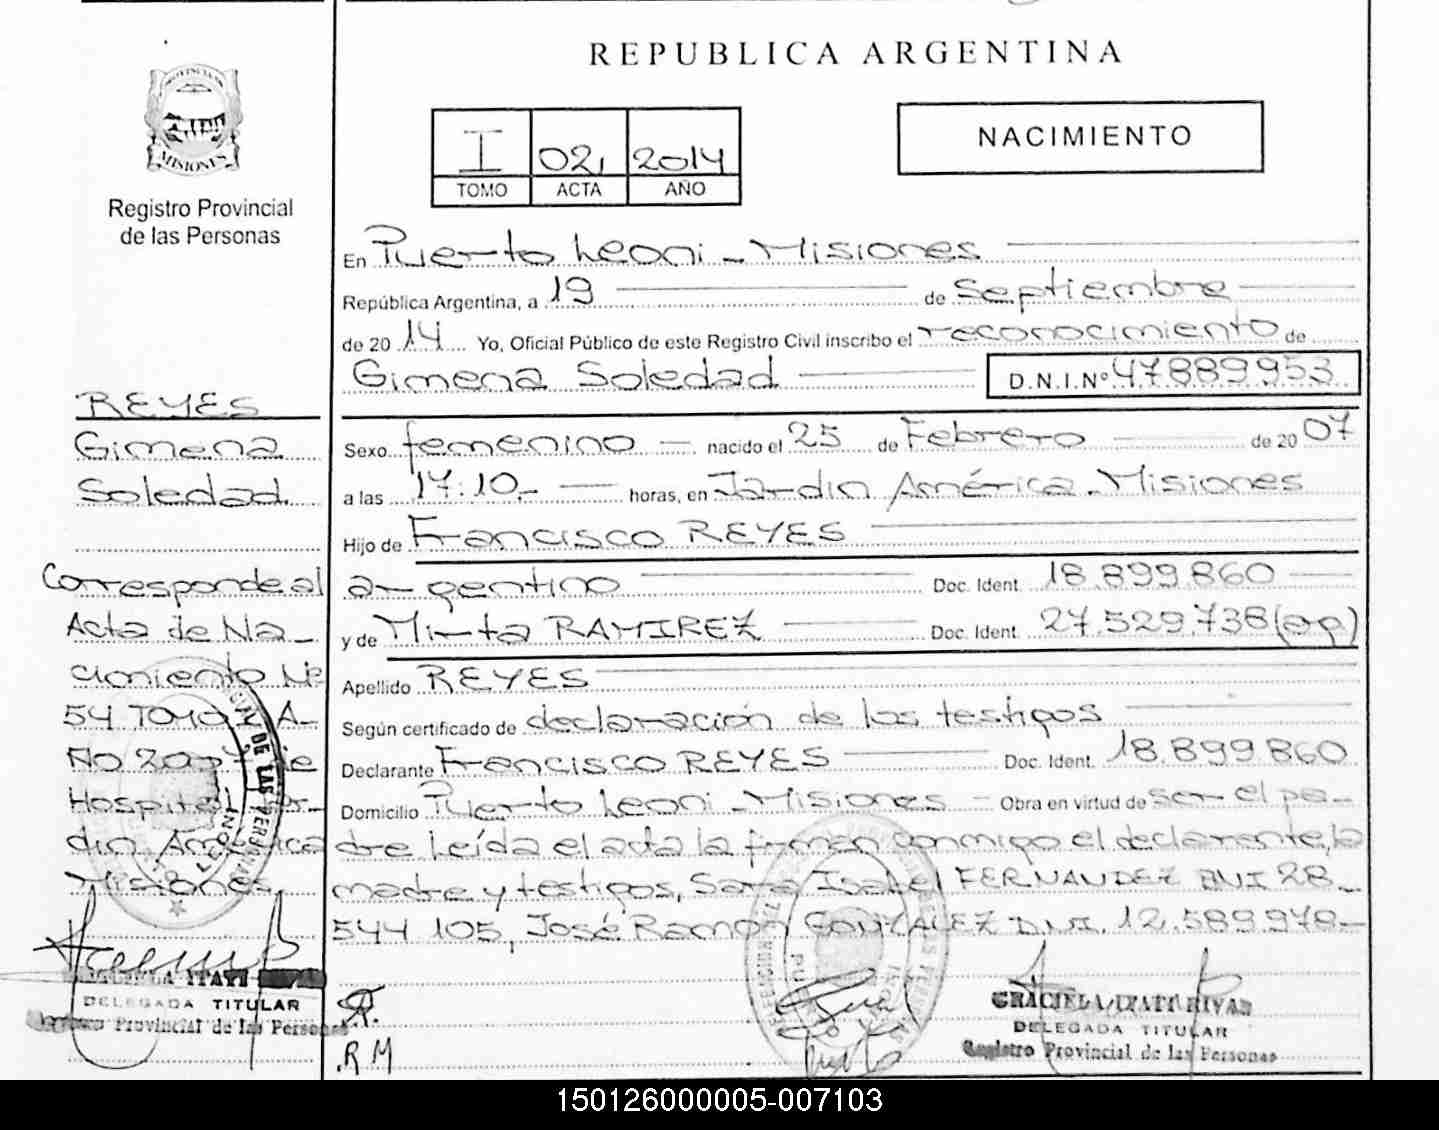 REPUBLICA ARGENTINA
PROVINCIA DE
MISIONES
Registro Provincial
de las Personas
I 02, 2014
TOMO ACTA AÑO
NACIMIENTO
En Puerto Leoni - Misiones
República Argentina, a 19 de Septiembre
de 20 14 Yo, Oficial Público de este Registro Civil inscribo el reconocimiento de
Gimena Soledad D.N.I.Nº 47889953
REYES
Gimena
Soledad
Sexo femenino nacido el 25 de Febrero de 20 07
a las 17:10.- horas, en Jardin América - Misiones
Hijo de Francisco REYES
argentino Doc. Ident. 18.899.860
y de Mirta RAMIREZ Doc. Ident. 27.529.738(ar)
Apellido REYES
Según certificado de declaración de los testigos
Declarante Francisco REYES Doc. Ident. 18.899.860
Domicilio Puerto Leoni - Misiones - Obra en virtud de ser el pa-
dre Leída el acta la firman conmigo el declarante, la
madre y testigos, Sara Isabel FERNANDEZ DNI 28.
544 105, José Ramón GONZALEZ D.N.I. 12.589.978-
Corresponde al
Acta de Na-
cimiento Nº
54 TOMO A-
ño 2007 de
Hospital Jar-
din América
Misiones
DELEGADA TITULAR
Registro Provincial de las Personas
R M
GRACIELA ITATI RIVAS
DELEGADA TITULAR
Registro Provincial de las Personas
150126000005-007103